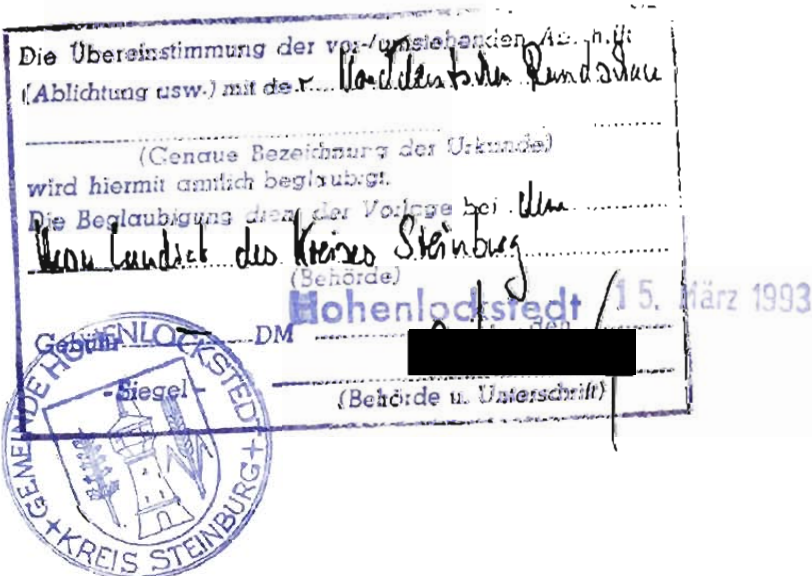 Die Übereinstimmung der vor-/umstehenden
(Ablichtung usw.) mit der Norddeutschen Rundschau
(Genaue Bezeichnung der Urkunde)
wird hiermit amtlich beglaubigt.
Die Beglaubigung dient der Vorlage bei dem
Herrn Landrat des Kreises Steinburg
(Behörde)
Hohenlockstedt 15. März 1993
den
Gebühr — DM
-Siegel-
(Behörde u. Unterschrift)
GEMEINDE HOHENLOCKSTEDT
+ KREIS STEINBURG +